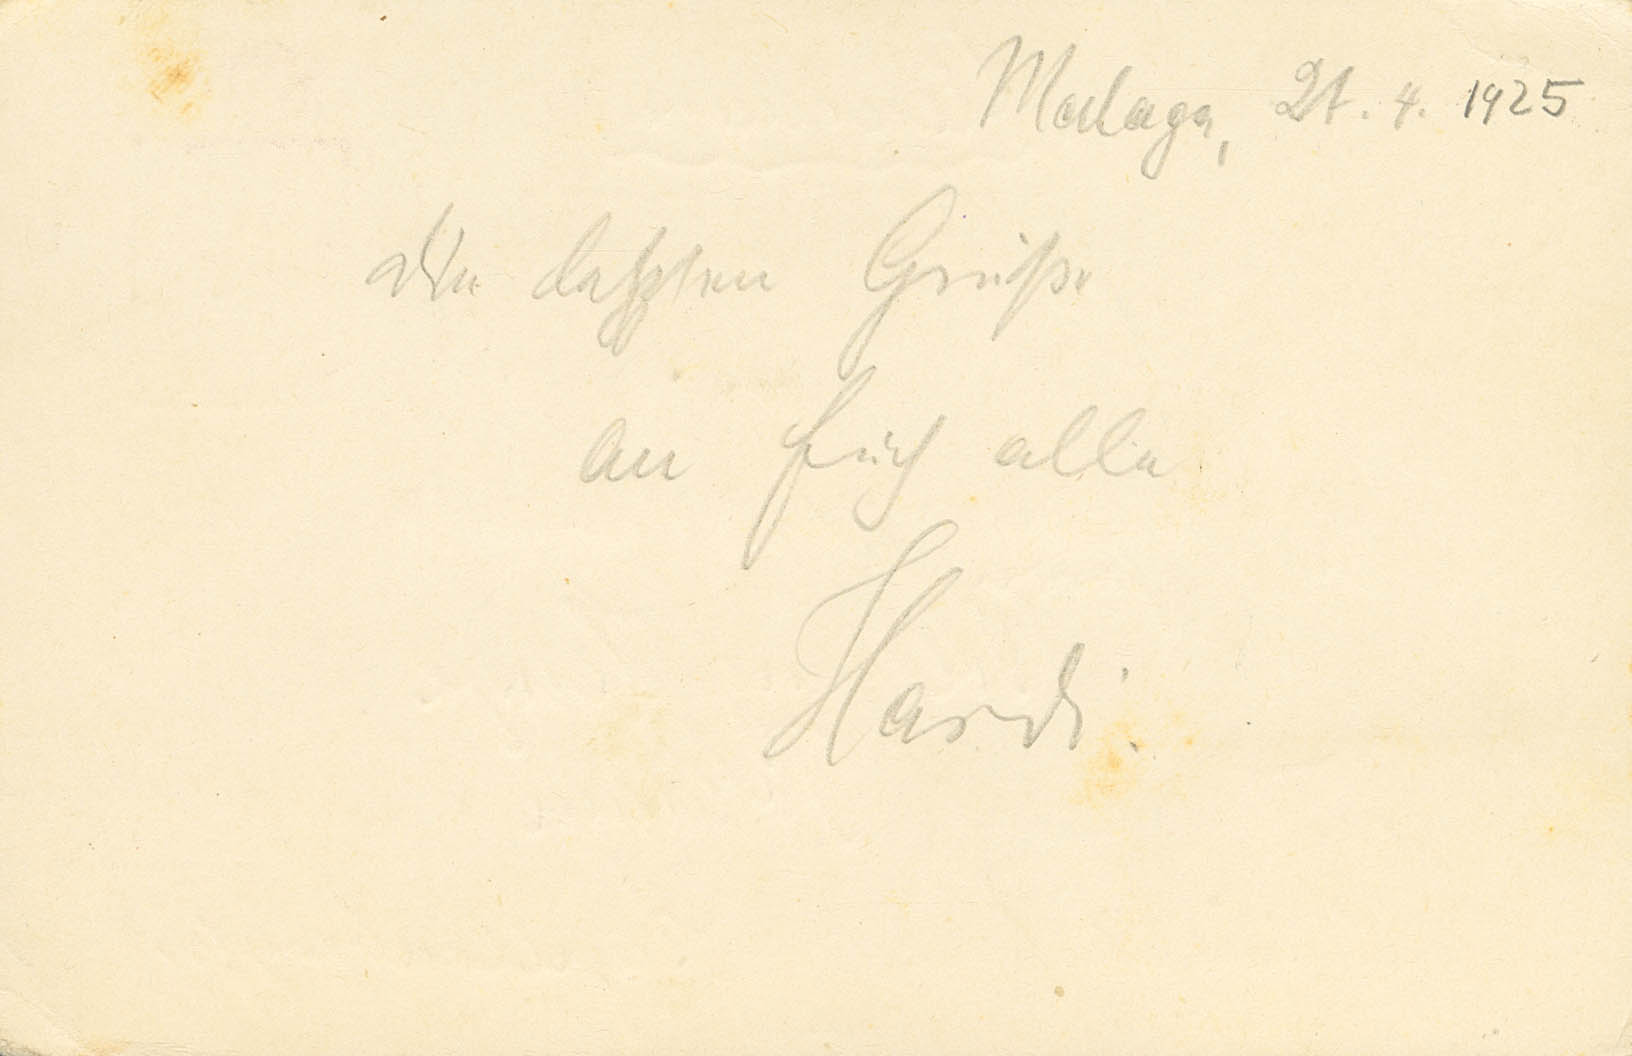 Malaga, 21. 4. 1925
Die besten Grüße
an Euch alle
Hardi.